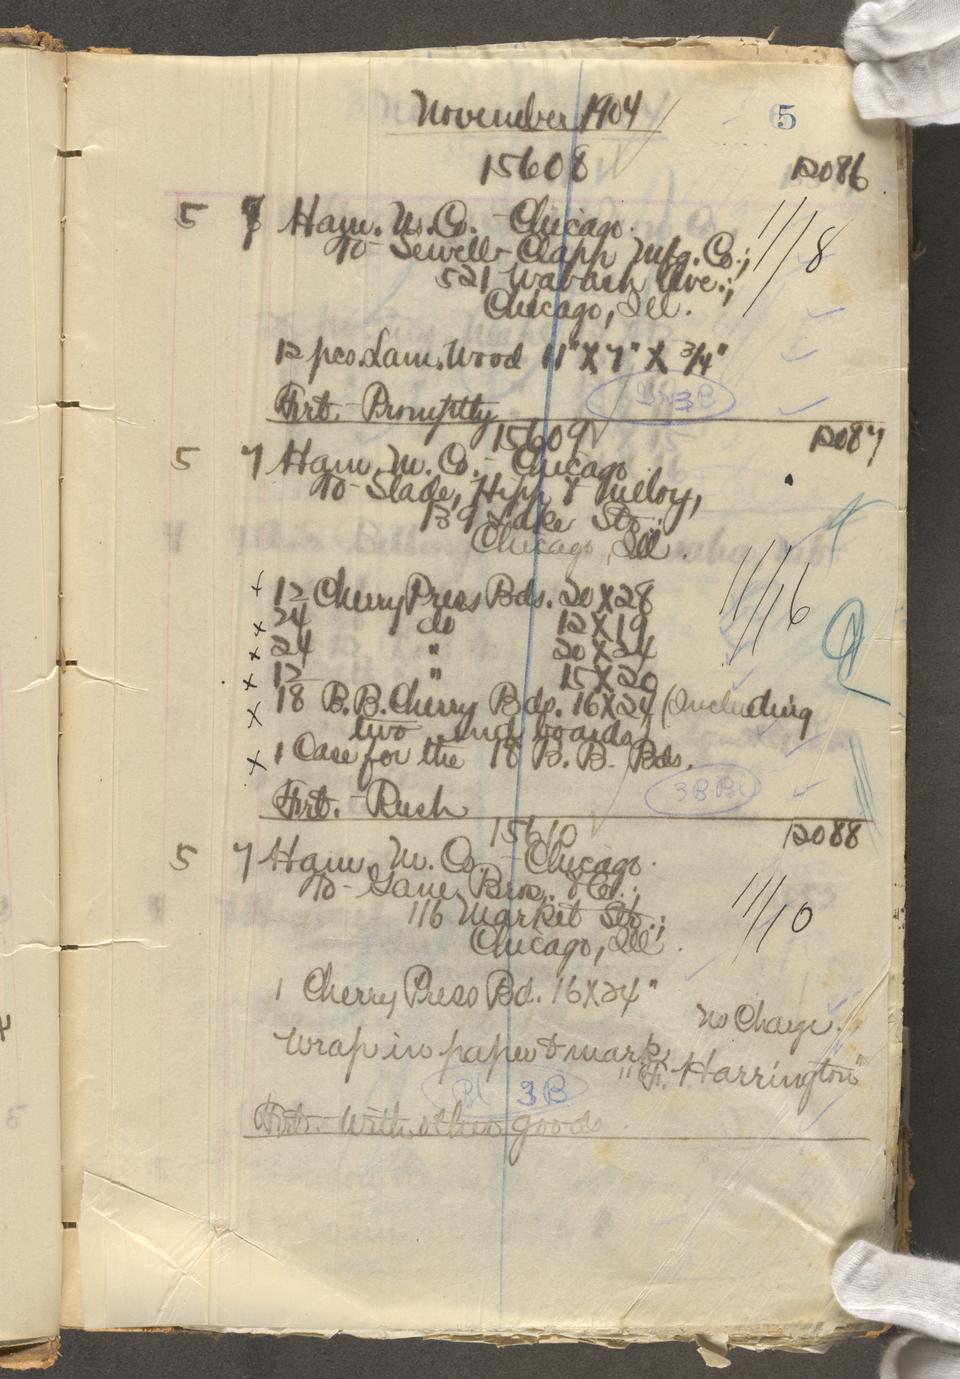 November 1904
5
15608
12086
5 7 Ham. M. Co. - Chicago.
To - Sewell-Clapp Mfg. Co.;
11/8
521 Wabash Ave.;
Chicago, Ill.
12 pcs. Lam. Wood 11" X 7" X 3/4"
Frt. - Promptly
15609
12087
5 7 Ham. M. Co. - Chicago
To - Slade, Hipp & Meloy,
139 Lake St.;
Chicago, Ill.
11/16
x 12 Cherry Press Bds. 20 X 28
x 24 do 12 X 19
x 24 " 20 X 24
x 12 " 15 X 20
x 18 B.B. Cherry Bds. 16 X 24 (Including
two end boards)
x 1 Case for the 18 B. B. Bds.
3 B Bl
Frt. - Rush
15610
12088
5 7 Ham. M. Co. - Chicago.
To - Gane Bros. & Co.;
116 Market St.;
11/10
Chicago, Ill.
1 Cherry Press Bd. 16 X 24"
No Charge.
Wrap in paper & mark
"F. Harrington"
Bl 3B
Frt. - With other goods